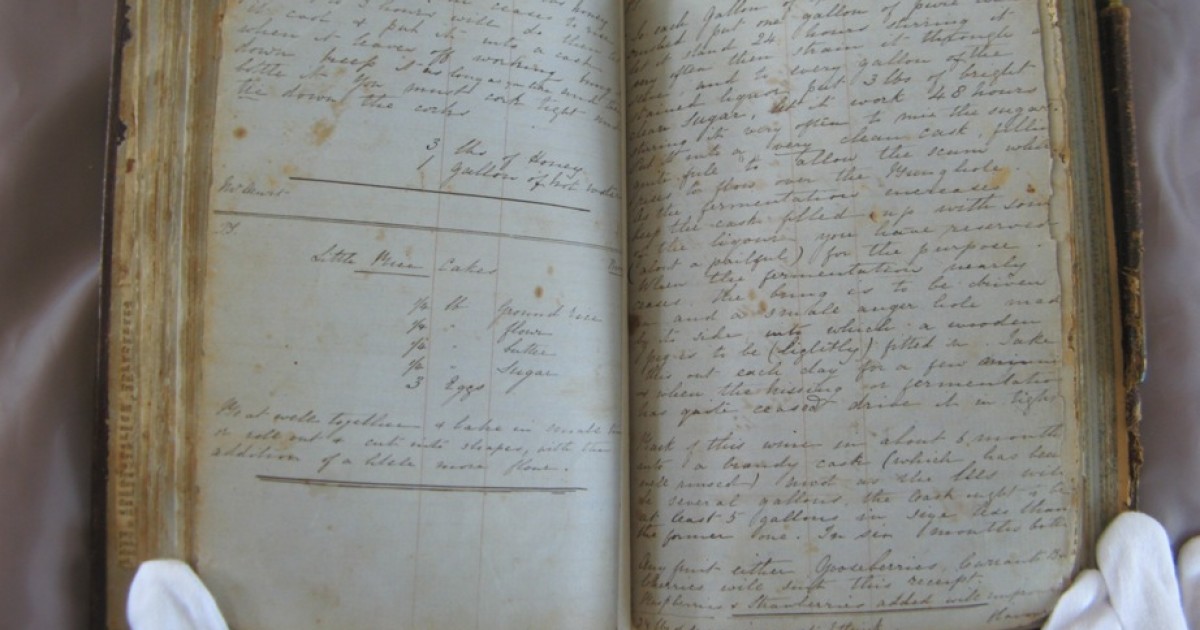 3 hours will do then
it cask & put it into a cask
when it leaves off working bung
down keep it as long as you like and then
bottle it You must cork tight and
tie down the corks
3 lbs of Honey
1 gallon of hot water
Little Rice Cakes
1/4 lb Ground rice
1/4 " flour
1/4 " butter
1/4 " Sugar
3 Eggs
Beat well together & bake in small
or role out & cut into shapes, with the
addition of a little more flour.
To each Gallon of
crushed put one gallon of pure
let it stand 24 hours stirring it
very often then strain it through a
sieve and to every gallon of the
strained liquor put 3 lbs of bright
clean sugar, let it work 48 hours
stirring it very often to mix the sugar.
Put it into a very clean cask, filling
quite full to allow the scum which
rises to flow over the Bunghole
As the fermentation increases
keep the cask filled up with some
of the liquor you have reserved
(about a pailful) for the purpose.
When the fermentation nearly
ceases. The bung is to be driven
in and a small auger hole made
by its side into which a wooden
peg is to be (slightly) fitted in. Take
this out each day for a few
& when the hissing or fermentation
has quite ceased drive it in tight
Rack of this wine in about 6 months
into a brandy cask (which has been
well rinsed) Most as the lees will
be several gallons, the cask ought to be
at least 5 gallons in size less than
the former one. In six months
Any fruit either Gooseberries, Currants
will suit this receipt.
Raspberries & Strawberries added will improve